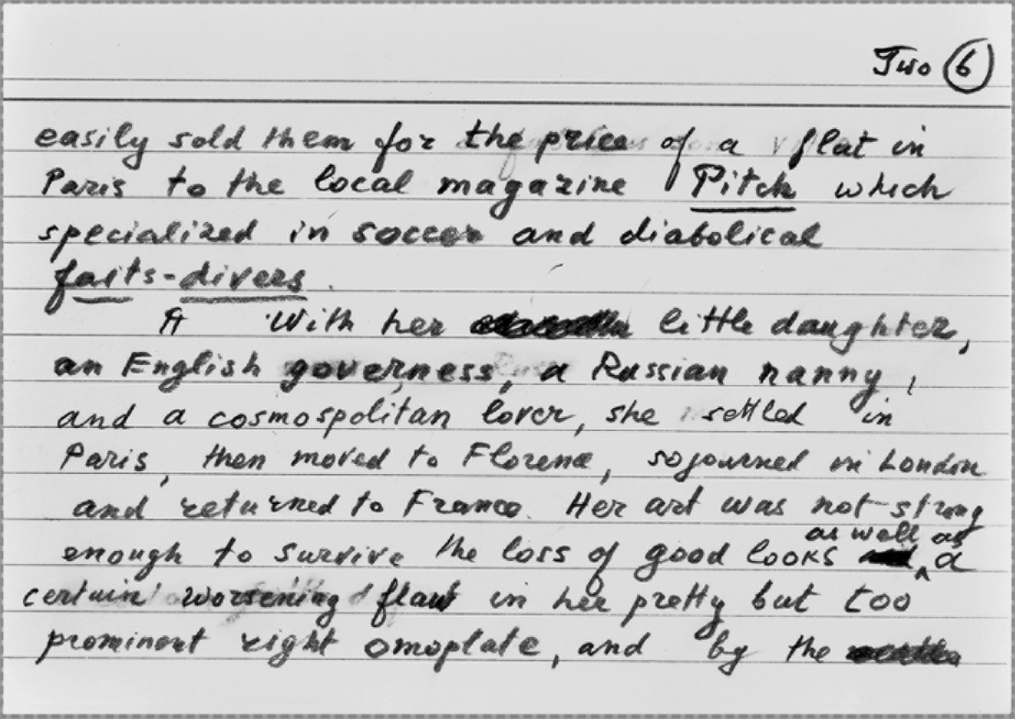 Two 6
easily sold them for the price of a flat in
Paris to the local magazine Pitch which
specialized in soccer and diabolical
faits-divers.
With her little daughter,
an English governess, a Russian nanny,
and a cosmospolitan lover, she settled in
Paris, then moved to Florence, sojourned in London
and returned to France. Her art was not strong
enough to survive the loss of good looks as well as a
certain worsening flaw in her pretty but too
prominent right omoplate, and by the